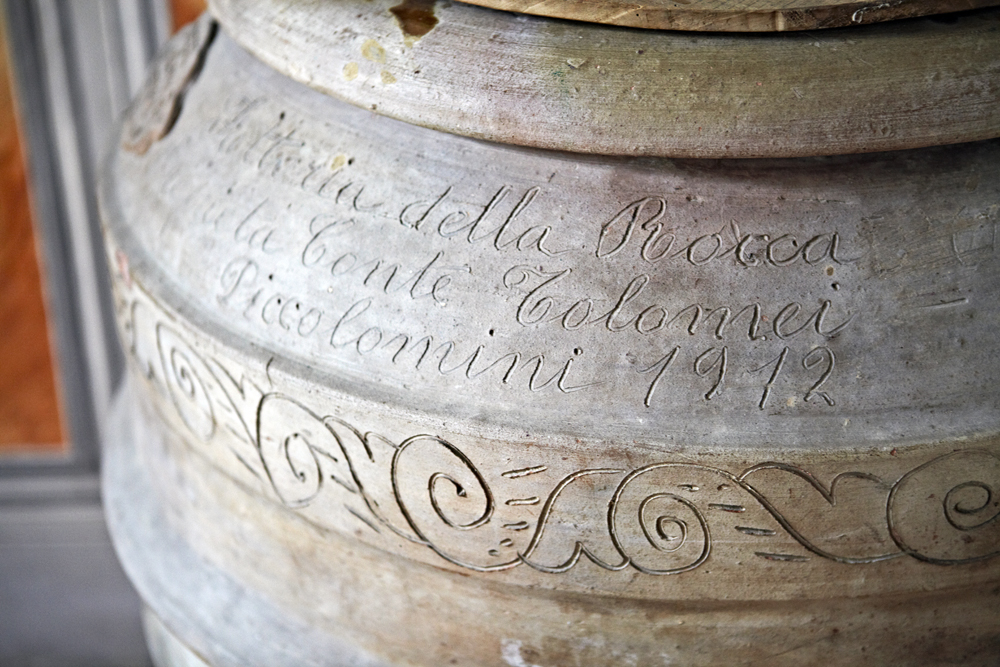 Fattoria della Rocca
Conte Tolomei
Piccolomini 1912